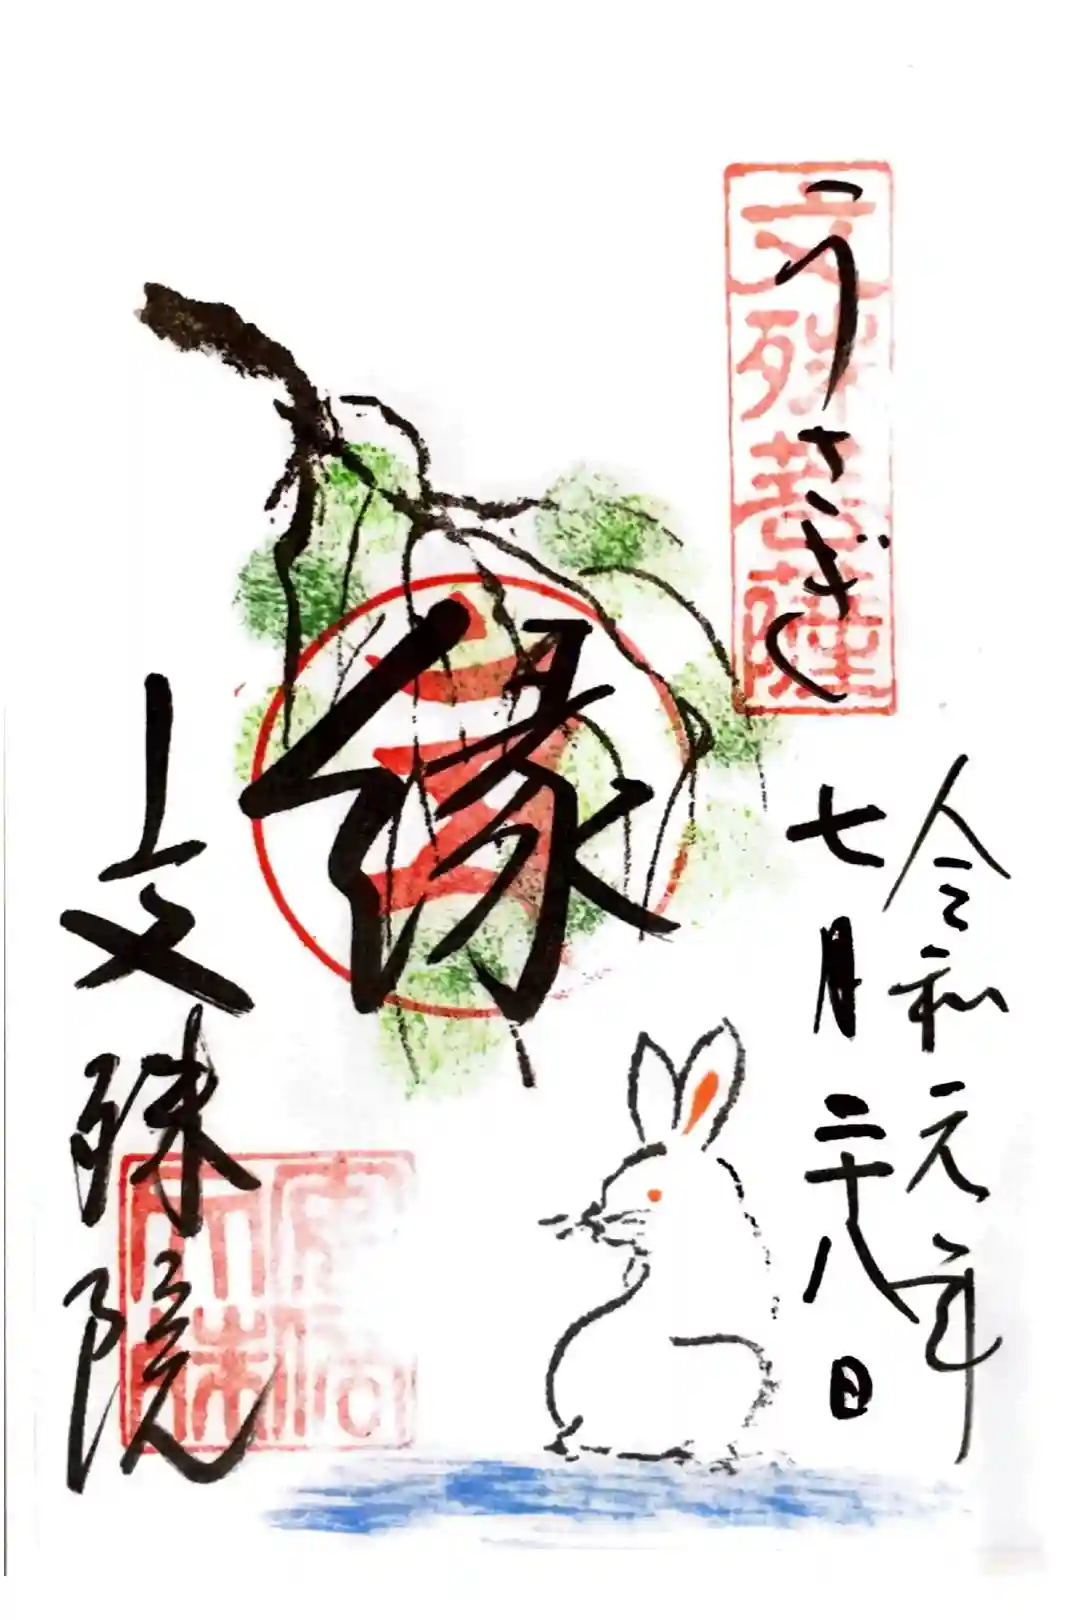 うさぎし
文殊菩薩
令和元年
七月二十八日
縁
文殊院